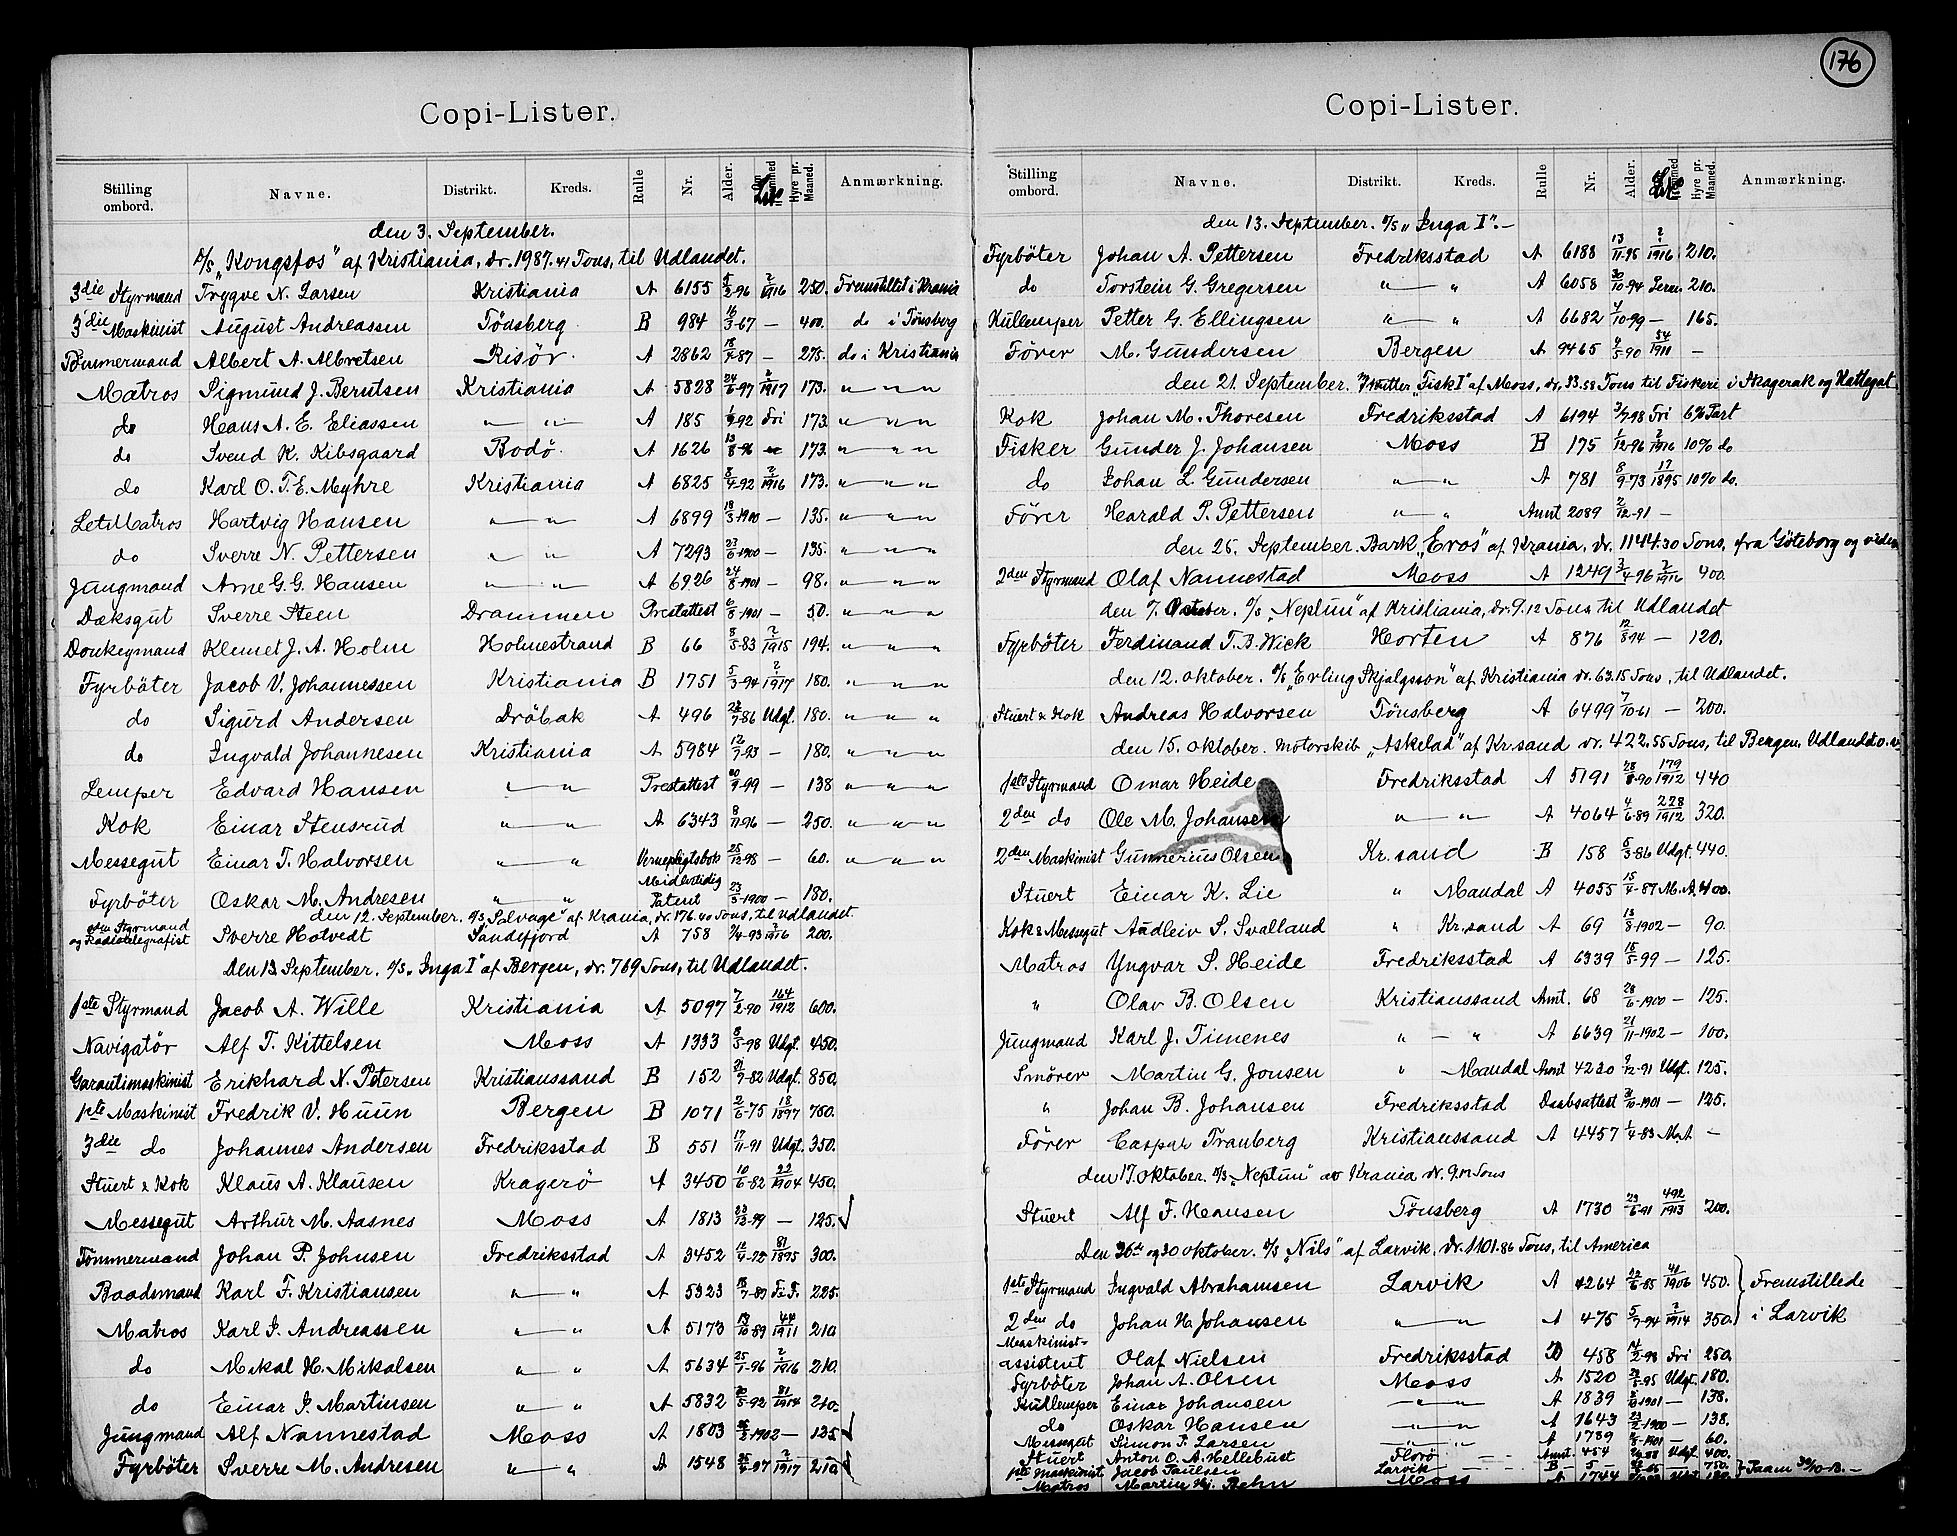 Copi-Lister.
Stilling ombord. Navne. Distrikt. Kreds. Rulle Nr. Alder. Hyre pr. Maaned. Anmærkning.
den 3. September.
"Kongsfos" af Kristiania, dr. 1987.41 Tons, til Udlandet.
3die Styrmand Trygve N. Larsen Kristiania A 6155 5/2-96 2/1916 250. Fremstillet i Krania
3die Maskinist August Andreassen Tödsberg B 984 16/3-67 — 400. do i Tönsberg
Tömmermand Albert A. Albretsen Risör. A 2862 18/4-87 — 275. do i Kristiania
Matros Sigmund J. Berntsen Kristiania A 5828 24/6-97 2/1917 173. " — " "
do Hans A. E. Eliassen " — " A 185 92 Fri 173. " — " "
do Svend K. Kibsgaard Bodö. A 1626 13/8-96 173. " — " "
do Karl O. T. E. Myhre Kristiania A 6825 8/4-92 2/1916 173. " — " "
LetMatros Hartvig Hansen " — " A 6899 18/3-1900 — 135. " — " "
do Sverre N. Pettersen " — " A 7293 23/6-1900 — 135. " — " "
Jungmand Arne G. G. Hansen " — " A 6926 24/8-1901 — 98. " — " "
Dæksgut Sverre Steen Drammen Prestattest 6/3-1901 — 50. " — " "
Donkeymand Klemet J. A. Holm Holmestrand B 66 8/5-83 2/1915 194. " — " "
Fyrböter Jacob V. Johannessen Kristiania B 1751 5/3-94 2/1917 180. " — " "
do Sigurd Andersen Dröbak A 496 22/7-86 Udgt. 180. " — " "
do Ingvald Johannesen Kristiania A 5984 12/7-93 — 180. " — " "
Lemper Edvard Hansen " — " Prestattest 20/9-99 — 138 " — " "
Kok Einar Stensrud " — " A 6343 8/11-96 — 250. " — " "
Messegut Einar T. Halvorsen " — " Vernepligtsbok 25/12-98 — 60. " — " "
Fyrböter Oskar M. Andresen " — " Midlertidig Patent 23/5-1900 — 180.
den 12. September. "Salvage" af Krania, dr. 176.40 Tons, til Udlandet.
Styrmand og Radiotelegrafist Sverre Hotvedt Sandefjord A 758 7/4-93 2/1916 200.
Den 13. September. "Inga I" af Bergen, dr. 769 Tons, til Udlandet.
1ste Styrmand Jacob A. Wille Kristiania A 5097 7/2-90 164/1912 600.
Navigatör Alf T. Kittelsen Moss A 1333 8/5-98 Udgt. 450.
Garantimaskinist Erikhard N. Petersen Kristianssand B 152 21/7-82 Udgt. 850.
1ste Maskinist Fredrik V. Huun Bergen B 1071 2/6-75 18/1897 750.
3die do Johannes Andersen Fredriksstad B 551 17/11-91 Udgt. 350.
Stuert & Kok Klaus A. Klausen Kragerö A 3450 10/6-82 22/1904 450.
Messegut Arthur M. Aasnes Moss A 1813 23/12-99 — 125. ✓
Tömmermand Johan P. Johnsen Fredriksstad A 3452 12/4-75 81/1895 300.
Baadsmand Karl F. Kristiansen " — " A 5323 18/7-89 225.
Matros Karl J. Andreassen " — " A 5173 19/10-89 44/1911 210.
do Mikal H. Mikalsen " — " A 5634 25/1-96 2/1916 210.
do Einar P. Martinsen " — " A 5832 20/5-92 81/1914 210.
Jungmand Alf Nannestad Moss A 1803 1902 — 135 ✓
Fyrböter Sverre M. Andresen " — " A 1548 97 2/1917 210 ✓
176
Copi-Lister.
Stilling ombord. Navne. Distrikt. Kreds. Rulle Nr. Alder. Hyre pr. Maaned. Anmærkning.
den 13. September. "Inga I". —
Fyrböter Johan A. Pettersen Fredriksstad A 6188 13/11-95 2/1916 210.
do Torstein G. Gregersen " — " A 6058 30/10-94 210.
Kullemper Petter G. Ellingsen " — " A 6682 4/10-99 — 165.
Förer M. Gundersen Bergen A 9465 4/5-90 54/1911 —
den 21. September. "Fisk I" af Moss, dr. 33.58 Tons til Fiskeri i Skagerak og Kattegat
Kok Johan M. Thoresen Fredriksstad A 6194 3/7-98 Fri 6% Part
Fisker Gunder J. Johansen Moss B 175 1/12-96 2/1916 10% do
do Johan L. Gundersen " — " A 781 8/9-73 17/1895 10% do.
Förer Harald P. Pettersen " — " Annt 2089 2/12-91 —
den 25. September. Bark "Eros" af Krania, dr. 1144.30 Tons, fra Göteborg og
2den Styrmand Olaf Nannestad Moss A 1249 3/4-96 2/1916 400.
den 7. October. "Neptun" af Kristiania, dr. 9.12 Tons til Udlandet
Fyrböter Ferdinand T. B. Wick Horten A 876 12/8-94 — 120.
den 12. Oktober. "Erling Skjalgsson" af Kristiania dr. 63.15 Tons, til Udlandet.
Stuert & Kok Andreas Halvorsen Tönsberg A 6499 7/10-61 — 200.
den 15. Oktober. Motorskib "Askelad" af Kr.sand dr. 422.55 Tons, til Bergen, Udlandet
1ste Styrmand Omar Heide Fredriksstad A 5191 28/8-90 179/1912 440
2den do Ole M. Johansen " — " A 4064 4/6-89 228/1912 320.
2den Maskinist Gunnerius Olsen Kr.sand B 158 5/3-86 Udgt. 440.
Stuert Einar K. Lie " Mandal A 4055 15/4-87 M.A. 400.
Kok & Messegut Audleiv S. Svalland " Kr.sand A 69 13/8-1902 — 90.
Matros Yngvar S. Heide Fredriksstad A 6339 15/5-99 — 125.
" Olav B. Olsen Kristianssand Annt. 68 28/6-1900 — 125.
Jungmand Karl J. Timenes " — " A 6639 21/11-1902 — 100.
Smörer Martin G. Jonsen " Mandal Annt 4230 9/12-91 Udgt. 125.
" Johan B. Johansen Fredriksstad Daabsattest 3/10-1901 — 125.
Förer Caspar Tranberg Kristianssand A 4457 1/4-83 M.A. —
den 17. Oktober. "Neptun" av Krania dr. 9.12 Tons
Stuert Alf F. Hansen Tönsberg A 1730 29/6-91 492/1913 200.
Den 26de og 30 Oktober. "Nils" af Larvik, dr. 1101.86 Tons, til America
1ste Styrmand Ingvald Abrahamsen Larvik A 4264 22/6-85 41/1906 450. Fremstillede
2den do Johan H. Johansen " — " A 475 5/7-94 2/1914 350. i Larvik
Maskinist-assistent Olaf Nielsen Fredriksstad B 458 14/2-98 Fri 250.
Fyrböter Johan A. Olsen Moss A 1520 95 Udgt. 180.
Kullemper Einar Johansen " — " A 1839 1901 — 138.
do Oskar Hansen " — " A 1643 1900 — 138.
Messegut Simon P. Larsen " — " A 1789 1901 — 60.
Stuert Anton O. A. Hellebust Florö Annt. 454 Udgt. 400.
1ste Maskinist Jacob Paulsen Larvik B 5 750.
Matros Martin Hj. Moss A 1744